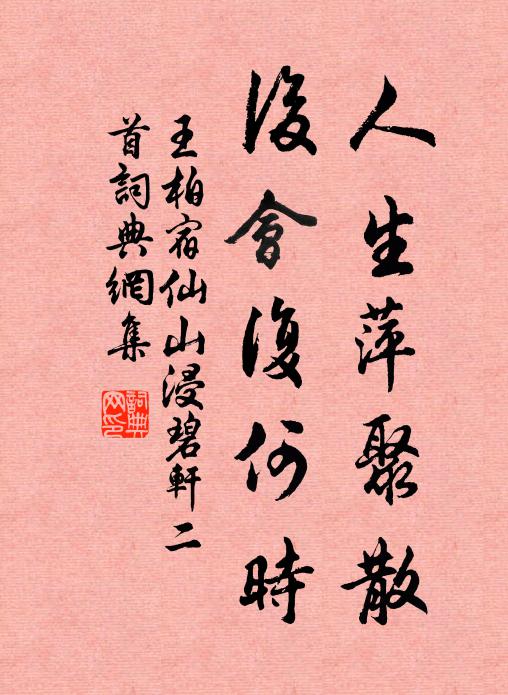 人生萍聚散
後會復何時
王柏宿仙山浸碧軒二
首詞典網集
詞典
网印